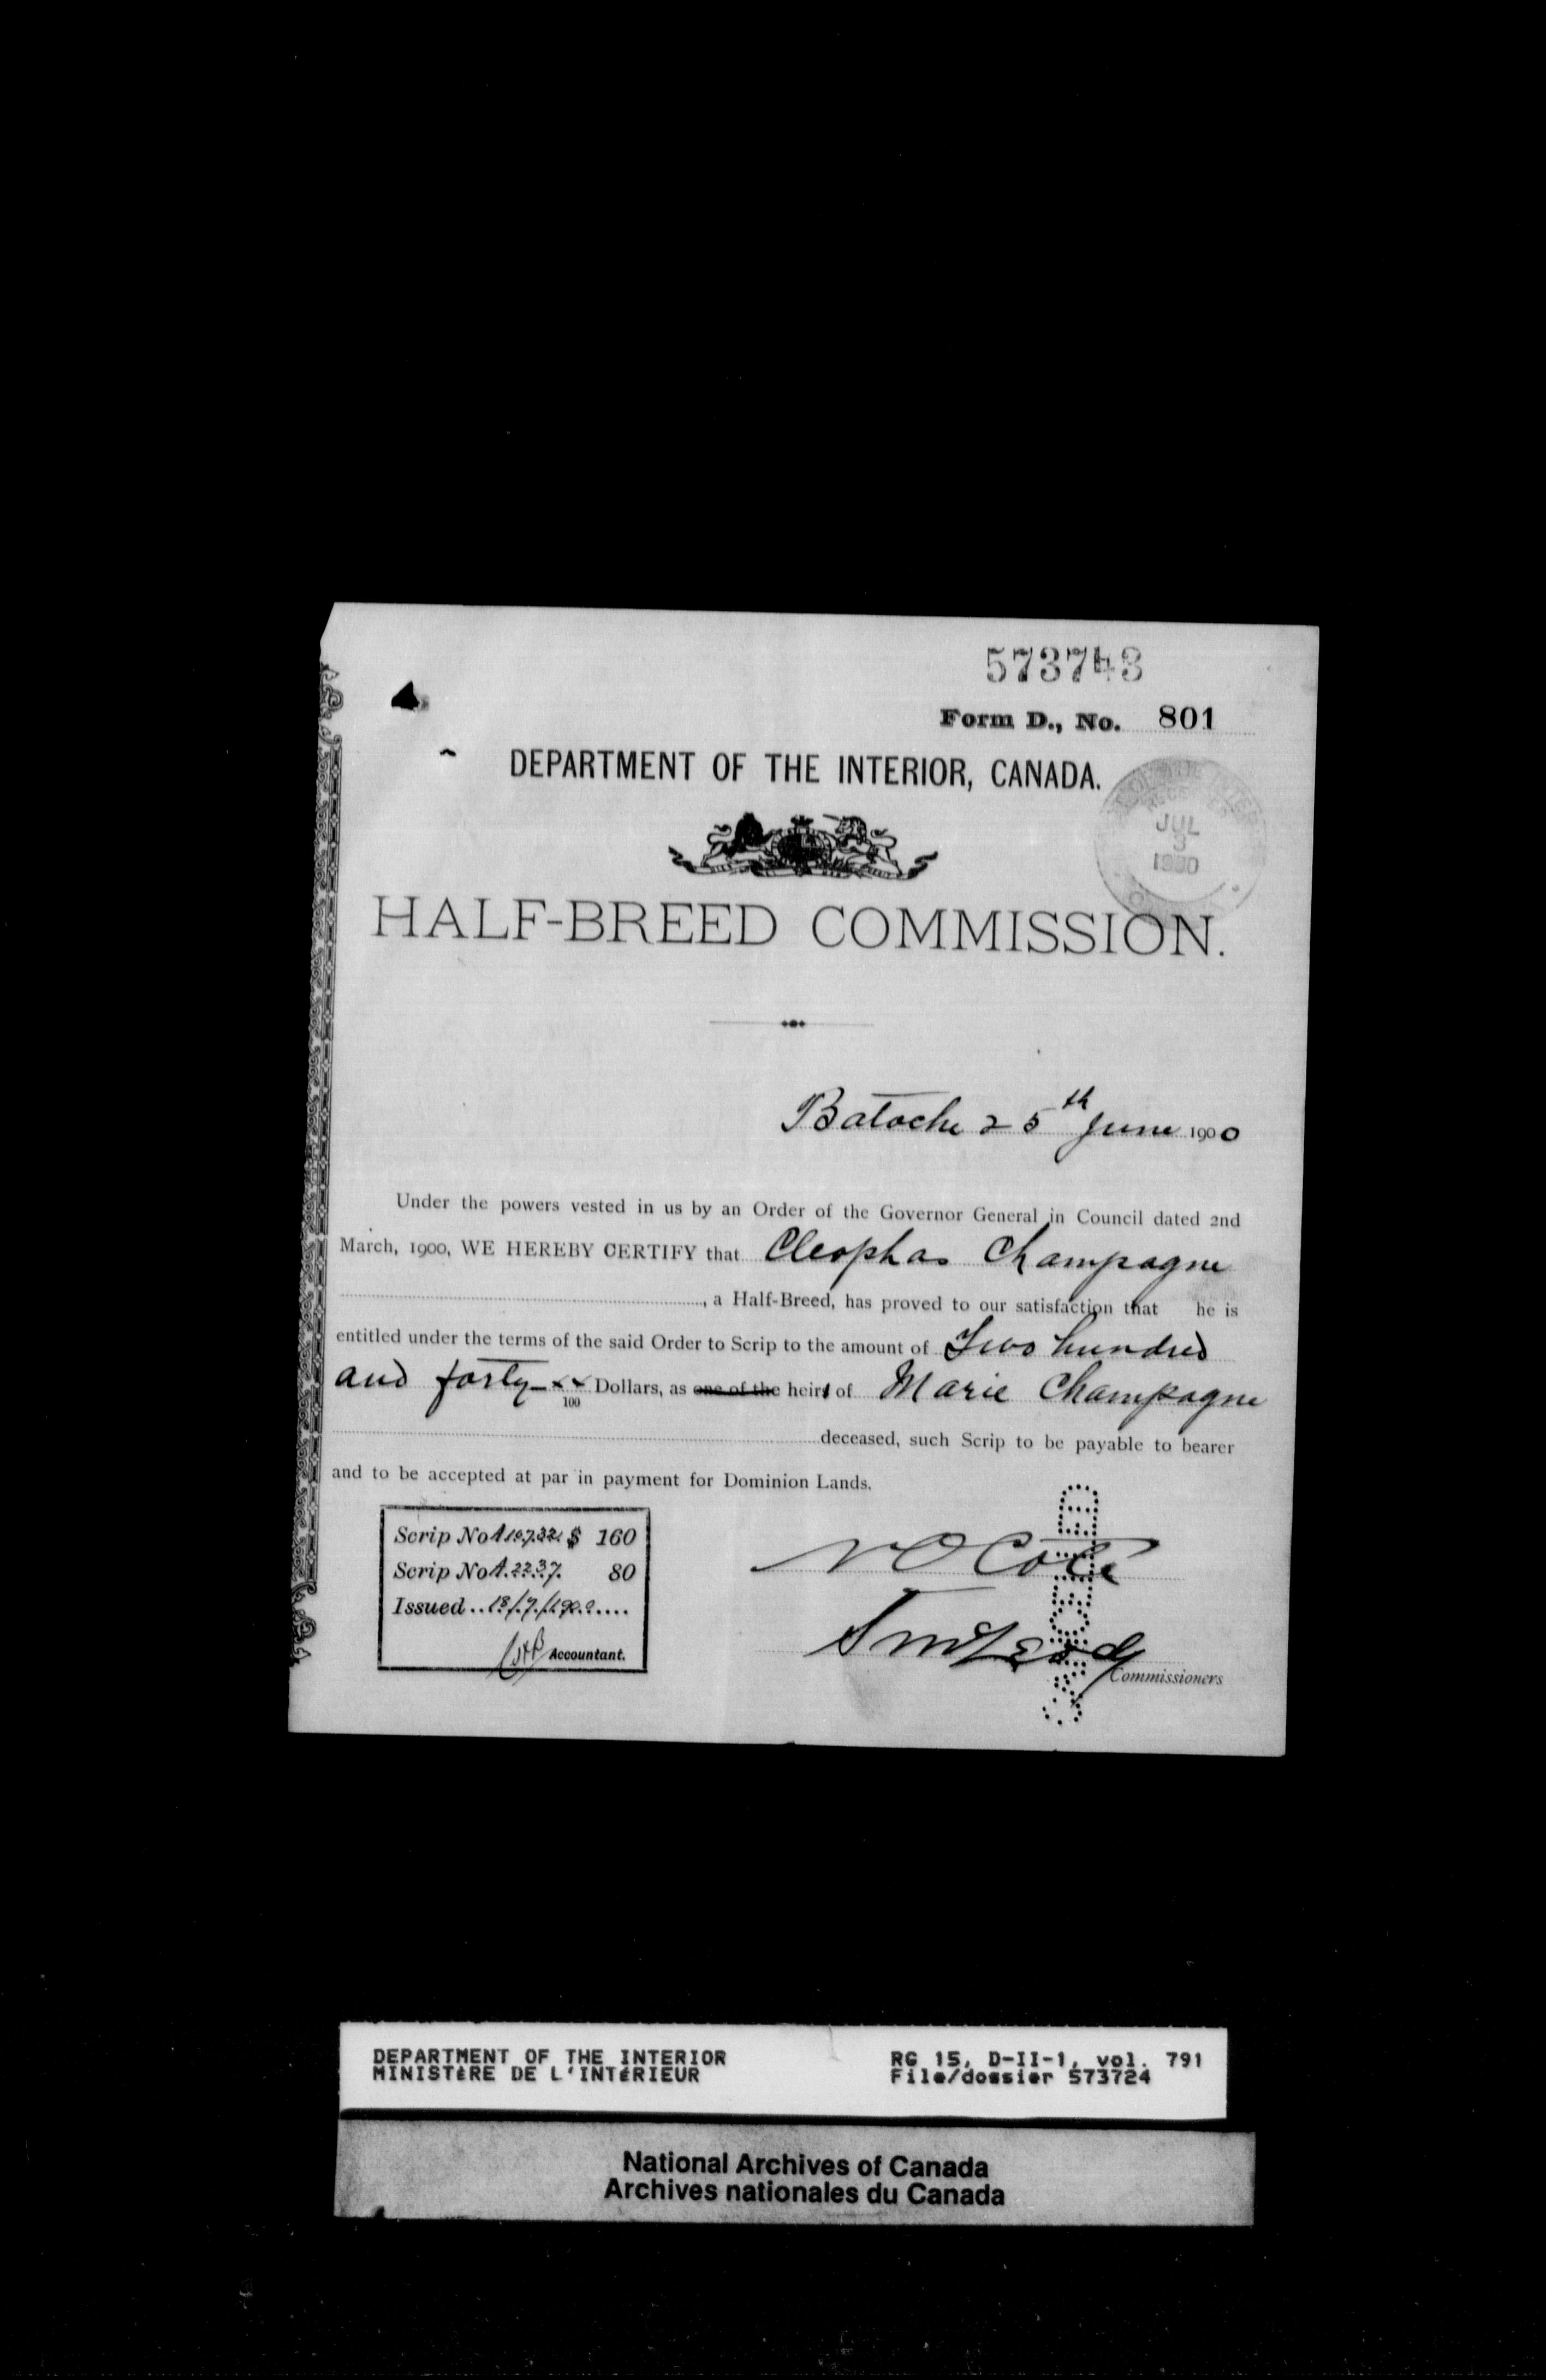 573743
Form D., No. 801
DEPARTMENT OF THE INTERIOR, CANADA.
JUL
3
1900
HALF-BREED COMMISSION.
Batoche 25th June 1900
Under the powers vested in us by an Order of the Governor General in Council dated 2nd
March, 1900, WE HEREBY CERTIFY that Cleophas Champagne
, a Half-Breed, has proved to our satisfaction that he is
entitled under the terms of the said Order to Scrip to the amount of Two hundred
and forty xx/100 Dollars, as one of the heirs of Marie Champagne
deceased, such Scrip to be payable to bearer
and to be accepted at par in payment for Dominion Lands.
Scrip No A10732 $ 160
Scrip No A.2237. 80
Issued..18/7/1900....
Accountant.
N O Coté
J McLeod
Commissioners
DEPARTMENT OF THE INTERIOR
MINISTÈRE DE L'INTÉRIEUR
RG 15, D-II-1, vol. 791
File/dossier 573724
National Archives of Canada
Archives nationales du Canada